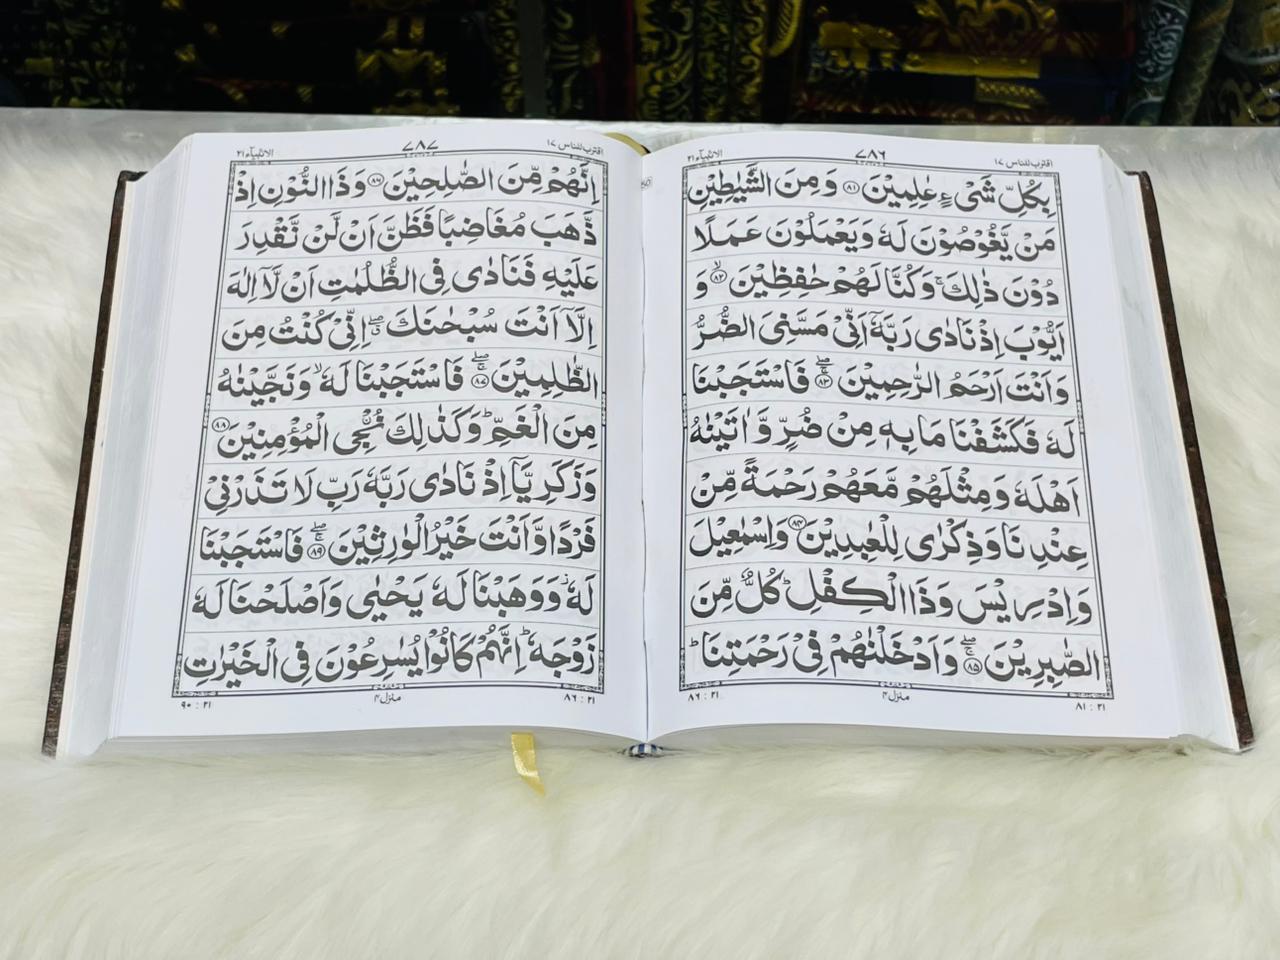 اقترب للناس ۱۷
۷۸۶
الانبیآء ۲۱
بِكُلِّ شَیْءٍ عٰلِمِیْنَ ﴿۸۱﴾ وَمِنَ الشَّیٰطِیْنِ
مَنْ یَّغُوْصُوْنَ لَهٗ وَیَعْمَلُوْنَ عَمَلًا
دُوْنَ ذٰلِكَ ۚ وَكُنَّا لَهُمْ حٰفِظِیْنَ ﴿۸۲﴾ۙ وَ
اَیُّوْبَ اِذْ نَادٰی رَبَّهٗۤ اَنِّیْ مَسَّنِیَ الضُّرُّ
وَاَنْتَ اَرْحَمُ الرّٰحِمِیْنَ ﴿۸۳﴾ۚۖ فَاسْتَجَبْنَا
لَهٗ فَكَشَفْنَا مَا بِهٖ مِنْ ضُرٍّ وَّاٰتَیْنٰهُ
اَهْلَهٗ وَمِثْلَهُمْ مَّعَهُمْ رَحْمَةً مِّنْ
عِنْدِنَا وَذِكْرٰی لِلْعٰبِدِیْنَ ﴿۸۴﴾ وَاِسْمٰعِیْلَ
وَاِدْرِیْسَ وَذَا الْكِفْلِ ؕ كُلٌّ مِّنَ
الصّٰبِرِیْنَ ﴿۸۵﴾ۚۖ وَاَدْخَلْنٰهُمْ فِیْ رَحْمَتِنَا ؕ
۲۱ : ۸۱
منزل ۴
۲۱ : ۸۶
اقترب للناس ۱۷
۷۸۷
الانبیآء ۲۱
اِنَّهُمْ مِّنَ الصّٰلِحِیْنَ ﴿۸۶﴾ وَذَا النُّوْنِ اِذْ
ذَّهَبَ مُغَاضِبًا فَظَنَّ اَنْ لَّنْ نَّقْدِرَ
عَلَیْهِ فَنَادٰی فِی الظُّلُمٰتِ اَنْ لَّاۤ اِلٰهَ
اِلَّاۤ اَنْتَ سُبْحٰنَكَ ۖۗ اِنِّیْ كُنْتُ مِنَ
الظّٰلِمِیْنَ ﴿۸۷﴾ۚۖ فَاسْتَجَبْنَا لَهٗ ۙ وَنَجَّیْنٰهُ
مِنَ الْغَمِّ ؕ وَكَذٰلِكَ نُـْۨجِی الْمُؤْمِنِیْنَ ﴿۸۸﴾
وَزَكَرِیَّاۤ اِذْ نَادٰی رَبَّهٗ رَبِّ لَا تَذَرْنِیْ
فَرْدًا وَّاَنْتَ خَیْرُ الْوٰرِثِیْنَ ﴿۸۹﴾ۚۖ فَاسْتَجَبْنَا
لَهٗ ؗ وَوَهَبْنَا لَهٗ یَحْیٰی وَاَصْلَحْنَا لَهٗ
زَوْجَهٗ ؕ اِنَّهُمْ كَانُوْا یُسٰرِعُوْنَ فِی الْخَیْرٰتِ
۲۱ : ۸۶
منزل ۴
۲۱ : ۹۰